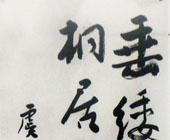 垂緌
桐居
虞